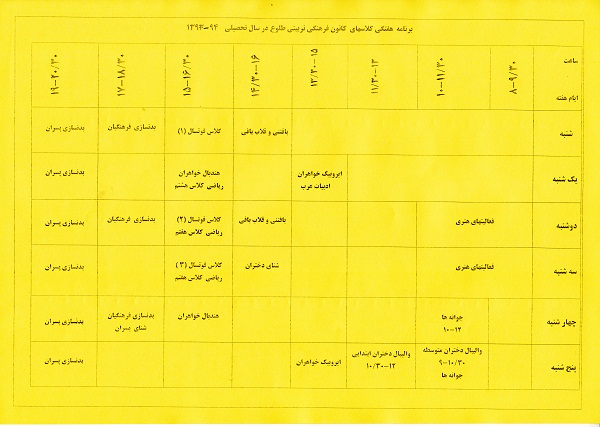 برنامه هفتگی کلاسهای کانون فرهنگی تربیتی طلوع در سال تحصیلی ۹۴-۱۳۹۳
ساعت
ایام هفته
۸-۹/۳۰
۱۰-۱۱/۳۰
۱۱/۳۰-۱۳
۱۳/۳۰-۱۵
۱۴/۳۰-۱۶
۱۵-۱۶/۳۰
۱۷-۱۸/۳۰
۱۹-۲۰/۳۰
شنبه
بافتنی و قلاب بافی
کلاس فوتسال (۱)
بدنسازی فرهنگیان
بدنسازی پسران
یک شنبه
ایروبیک خواهران
ادبیات عرب
هندبال خواهران
ریاضی کلاس هشتم
بدنسازی پسران
دوشنبه
فعالیتهای هنری
بافتنی و قلاب بافی
کلاس فوتسال (۲)
ریاضی کلاس هفتم
بدنسازی فرهنگیان
بدنسازی پسران
سه شنبه
فعالیتهای هنری
شنای دختران
کلاس فوتسال (۳)
ریاضی کلاس هفتم
بدنسازی پسران
چهار شنبه
جوانه ها
۱۰-۱۲
هندبال خواهران
بدنسازی فرهنگیان
شنای پسران
بدنسازی پسران
پنج شنبه
والیبال دختران متوسطه
۹-۱۰/۳۰
جوانه ها
والیبال دختران ابتدایی
۱۰/۳۰-۱۲
ایروبیک خواهران
بدنسازی پسران